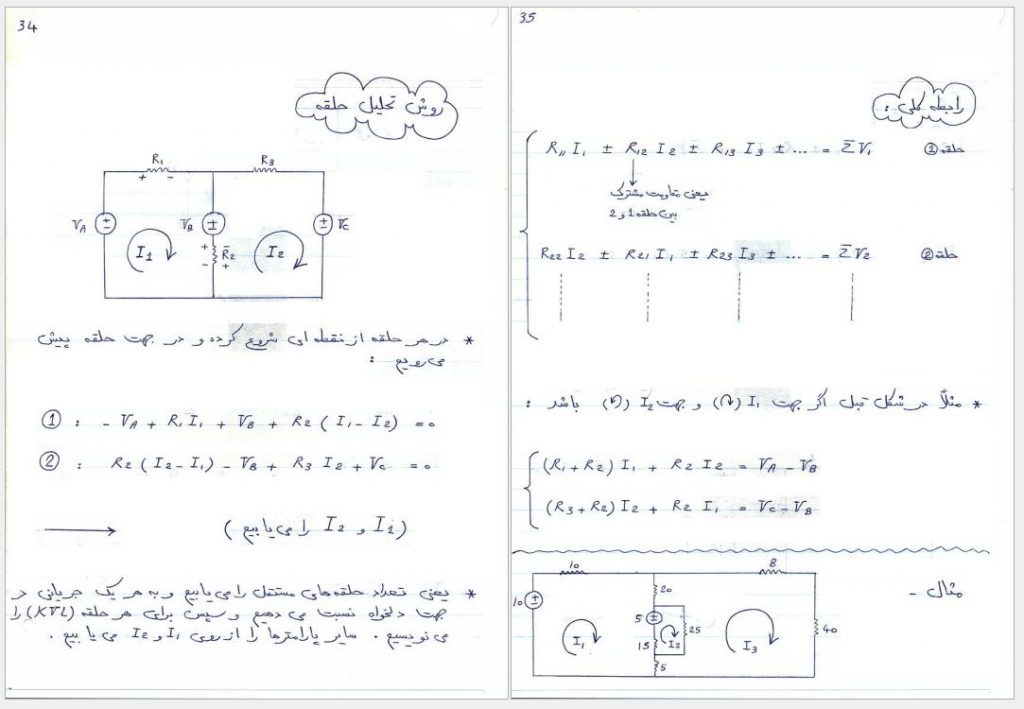 34
روش تحلیل حلقه
R₁ R₃
+ -
V_A ± V_B ± ± V_C
I₁ + R₂ - I₂
- +
* در هر حلقه از نقطه ای شروع کرده و در جهت حلقه پیش
می رویم :
① : - V_A + R₁I₁ + V_B + R₂ (I₁ - I₂) = 0
② : R₂ (I₂ - I₁) - V_B + R₃ I₂ + V_C = 0
→ (I₁ و I₂ را می یابیم)
* یعنی تعداد حلقه های مستقل را می یابیم و به هر یک جریانی در
جهت دلخواه نسبت می دهیم و سپس برای هر حلقه (KVL) را
می نویسیم . سایر پارامترها را از روی I₁ و I₂ می یابیم .
35
رابطه کلی :
حلقه ① R₁₁ I₁ ± R₁₂ I₂ ± R₁₃ I₃ ± ... = ΣV₁
یعنی مقاومت مشترک
بین حلقه 1 و 2
حلقه ② R₂₂ I₂ ± R₂₁ I₁ ± R₂₃ I₃ ± ... = ΣV₂
* مثلاً در شکل قبل اگر جهت I₁ (↻) و جهت I₂ (↺) باشد :
(R₁ + R₂) I₁ + R₂ I₂ = V_A - V_B
(R₃ + R₂) I₂ + R₂ I₁ = V_C - V_B
مثال -
10 8
20
10 ± 5 ±
I₁ 15 I₂ 25 I₃ 40
5